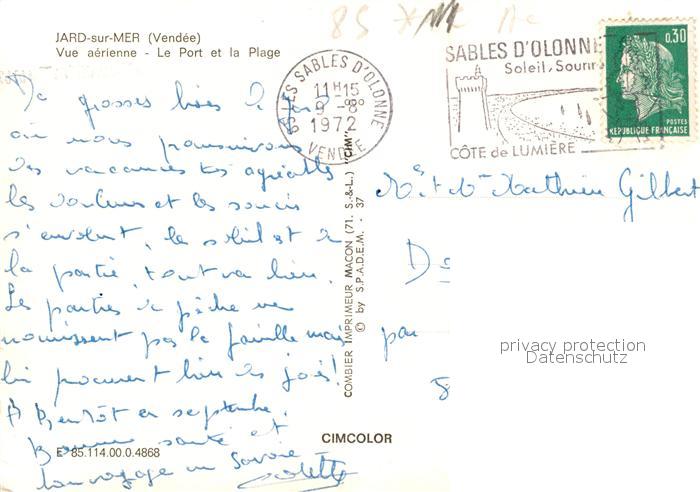 85
JARD-sur-MER (Vendée)
Vue aérienne - Le Port et la Plage
LES SABLES D'OLONNE
11H15
9-8
1972
VENDÉE
SABLES D'OLONNE
Soleil, Sourire
CÔTE de LUMIÈRE
0.30
POSTES
REPUBLIQUE FRANÇAISE
De grosses bises de
où nous poursuivons
des vacances très agréables
les douleurs et les soucis
s'envolent, le soleil est de
la partie, tout va bien.
Les parties de pêche ne
nourrissent pas la famille mais
lui procurent bien des joies!
A Bientôt en septembre.
Bonne santé et
bon voyage en Savoie
Colette
Mr et Me Mathieu Gilbert
par
COMBIER IMPRIMEUR MACON (71. S.-&-L.) "CIM"
© by S.P.A.D.E.M. - 37
privacy protection
Datenschutz
CIMCOLOR
E 85.114.00.0.4868